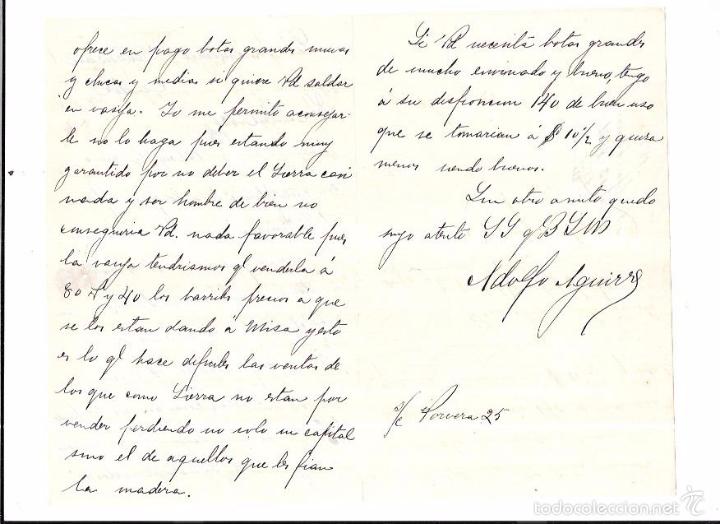 ofrece en pago botas grandes nuevas
y chicas y medias si quiere Vd. saldar
en vasija. Yo me permito aconsejar-
le no lo haga pues estando muy
garantido por no deber el Sierra casi
nada y ser hombre de bien no
conseguiria Vd. nada favorable pues
la vasija tendriamos ql venderla á
80 y 40 los barriles precios á que
se los estan dando á Misa y esto
es lo ql hace dificiles las ventas de
los que como Sierra no estan por
vender perdiendo no solo su capital
sino el de aquellos que les fian
la madera.
Si Vd. necesitá botas grandes
de mucho envinado y bueno, tengo
á su disposicion 140 de buen uso
que se tomarian á $ 10 1/2 y quiza
menos siendo buenos.
Sin otro asunto quedo
suyo atento SS q B S M
Adolfo Aguirre
s/c Porvera 25
© todocoleccion.net
todocoleccion.net